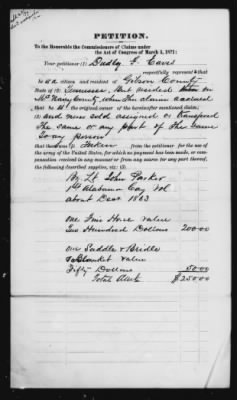 PETITION.
To the Honorable the Commissioners of Claims under
the Act of Congress of March 3, 1871:
Your petitioner (1) Dudly F. Caves
respectfully represents that
he is a citizen and resident of Gibson County
State of Tennessee, But resided in
McNary County, when the claim accrued
that he is the original owner of the hereinafter mentioned claim;
(2) and never sold assigned or transfered
The same or any part of The same
To any person
that there was taken from the petitioner for the use of
the army of the United States, for which no payment has been made, or com-
pensation received in any manner or from any source for any part thereof,
the following described supplies, viz:
By Lt John Parker
1st Alabama Cav Vol
about Decr 1863
one Fine Horse value
Two Hundred Dollars 200.00
one Saddle & Bridle
& Blanket value
Fifty Dollars 50.00
Total Amt $250.00